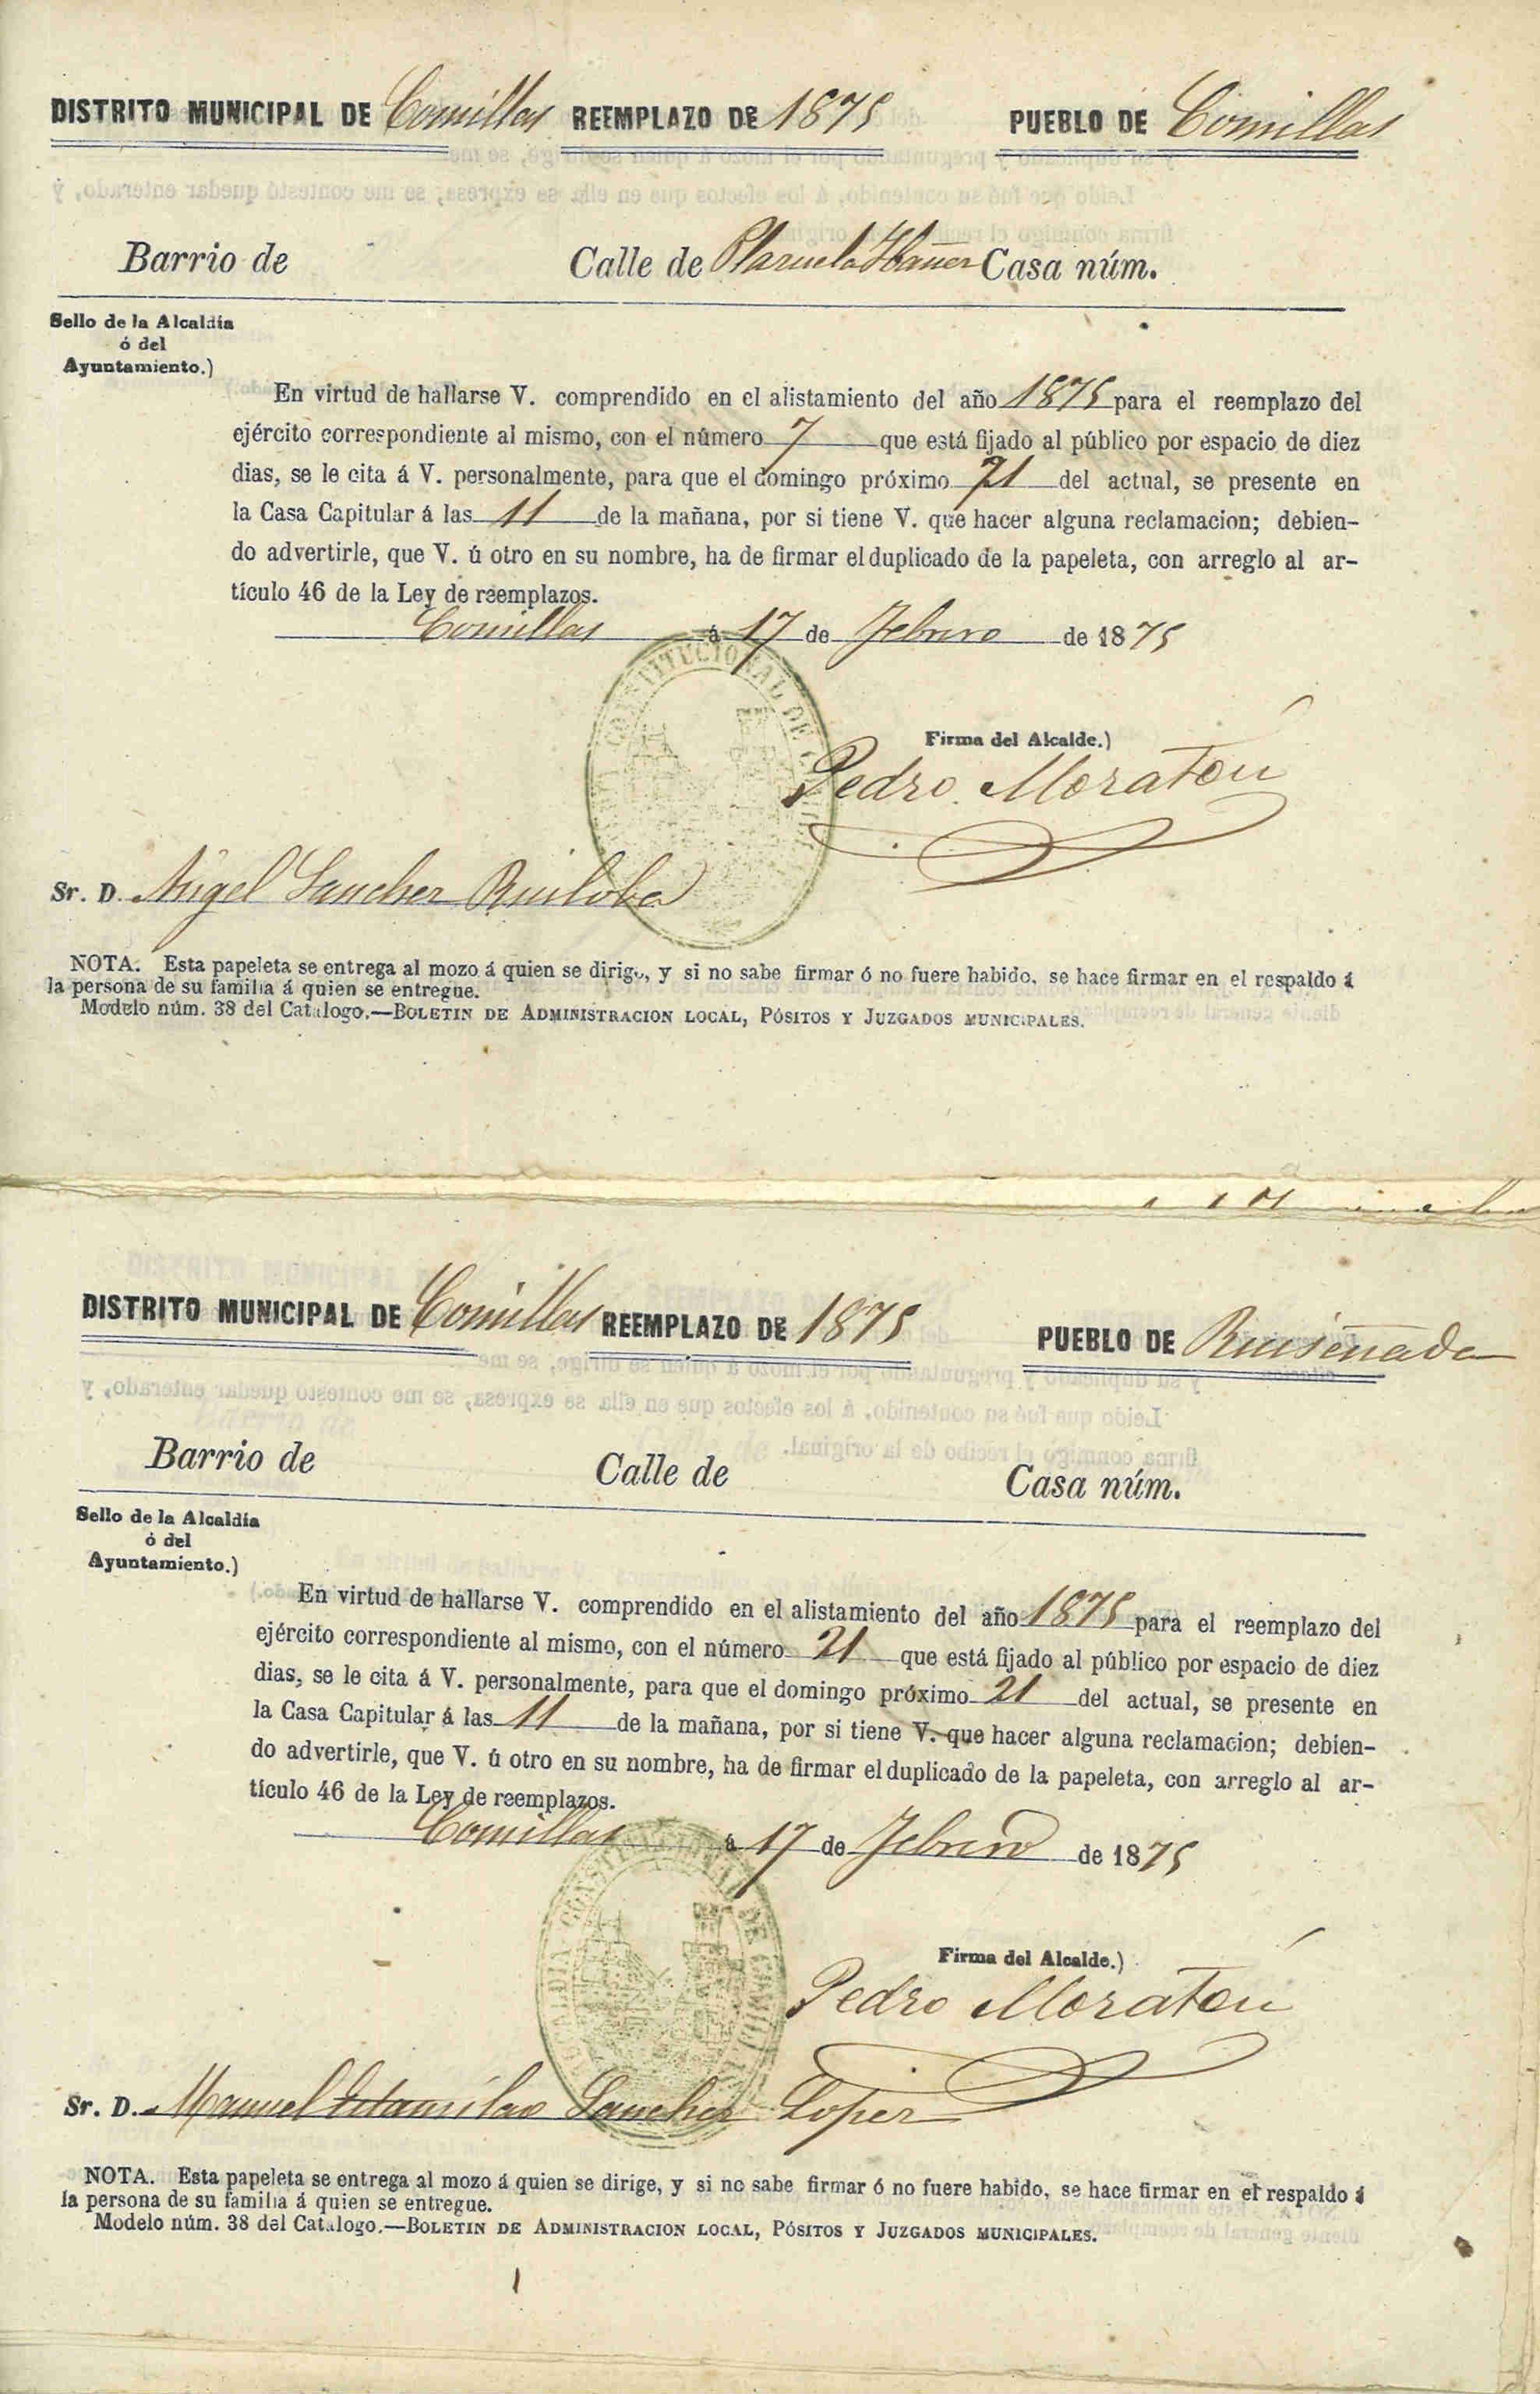 DISTRITO MUNICIPAL DE Comillas REEMPLAZO DE 1875 PUEBLO DE Comillas
Barrio de Calle de Plazuela Ibañez Casa núm.
Sello de la Alcaldía
ó del
Ayuntamiento.)
En virtud de hallarse V. comprendido en el alistamiento del año 1875 para el reemplazo del
ejército correspondiente al mismo, con el número 7 que está fijado al público por espacio de diez
dias, se le cita á V. personalmente, para que el domingo próximo 21 del actual, se presente en
la Casa Capitular á las 11 de la mañana, por si tiene V. que hacer alguna reclamacion; debien-
do advertirle, que V. ú otro en su nombre, ha de firmar el duplicado de la papeleta, con arreglo al ar-
tículo 46 de la Ley de reemplazos.
Comillas á 17 de Febrero de 1875
Firma del Alcalde.)
Pedro Moraton
Sr. D. Angel Sanchez Ruiloba
NOTA. Esta papeleta se entrega al mozo á quien se dirige, y si no sabe firmar ó no fuere habido, se hace firmar en el respaldo á
la persona de su familia á quien se entregue.
Modelo núm. 38 del Catalogo.—BOLETIN DE ADMINISTRACION LOCAL, PÓSITOS Y JUZGADOS MUNICIPALES.
DISTRITO MUNICIPAL DE Comillas REEMPLAZO DE 1875 PUEBLO DE Ruiseñada
Barrio de Calle de Casa núm.
Sello de la Alcaldía
ó del
Ayuntamiento.)
En virtud de hallarse V. comprendido en el alistamiento del año 1875 para el reemplazo del
ejército correspondiente al mismo, con el número 21 que está fijado al público por espacio de diez
dias, se le cita á V. personalmente, para que el domingo próximo 21 del actual, se presente en
la Casa Capitular á las 11 de la mañana, por si tiene V. que hacer alguna reclamacion; debien-
do advertirle, que V. ú otro en su nombre, ha de firmar el duplicado de la papeleta, con arreglo al ar-
tículo 46 de la Ley de reemplazos.
Comillas á 17 de Febrero de 1875
ALCALDIA CONSTITUCIONAL DE COMILLAS
Firma del Alcalde.)
Pedro Moraton
Sr. D. Manuel Sanchez Lopez
NOTA. Esta papeleta se entrega al mozo á quien se dirige, y si no sabe firmar ó no fuere habido, se hace firmar en el respaldo á
la persona de su familia á quien se entregue.
Modelo núm. 38 del Catalogo.—BOLETIN DE ADMINISTRACION LOCAL, PÓSITOS Y JUZGADOS MUNICIPALES.